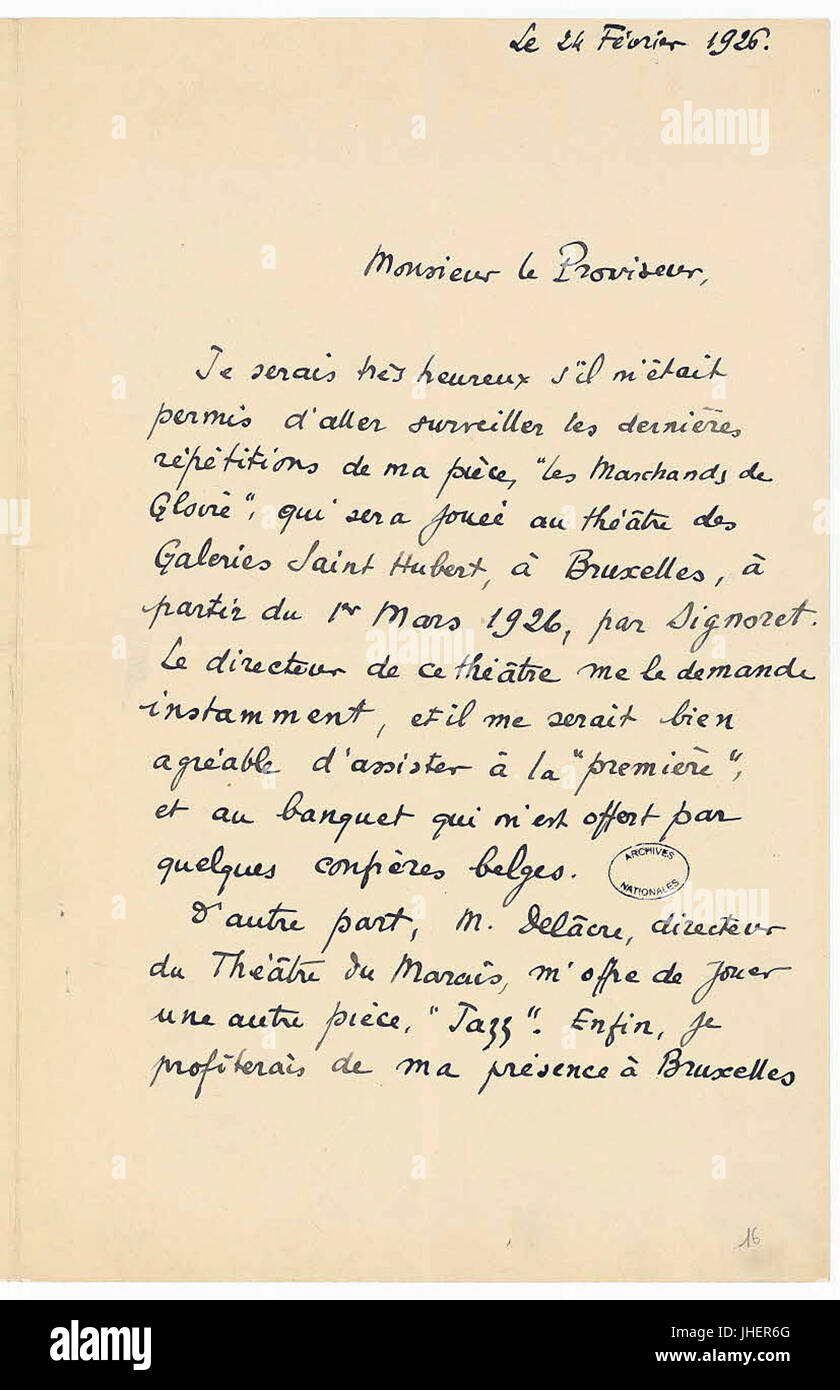 Le 24 Février 1926.
Monsieur le Proviseur,
Je serais très heureux s'il m'était
permis d'aller surveiller les dernières
répétitions de ma pièce, "les Marchands de
Gloire", qui sera jouée au théâtre des
Galeries Saint Hubert, à Bruxelles, à
partir du 1er Mars 1926, par Signoret.
Le directeur de ce théâtre me le demande
instamment, et il me serait bien
agréable d'assister à la "première",
et au banquet qui m'est offert par
quelques confrères belges.
ARCHIVES
NATIONALES
D'autre part, M. Delâcre, directeur
du Théâtre du Marais, m'offre de jouer
une autre pièce, "Jazz". Enfin, je
profiterais de ma présence à Bruxelles
16
alamy
Image ID: JHER6G
www.alamy.com